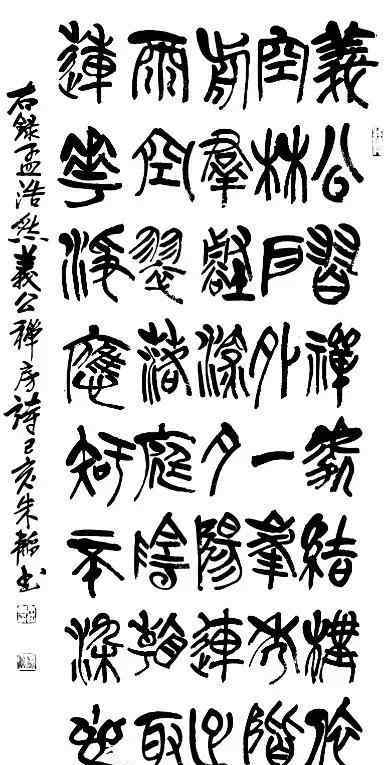 義公習禪寂結構依
空林戶外一峯秀階
前羣壑深夕陽連
雨空翠落庭陰看取
蓮華淨應知不染心
右錄孟浩然義公禪房詩己亥朱書